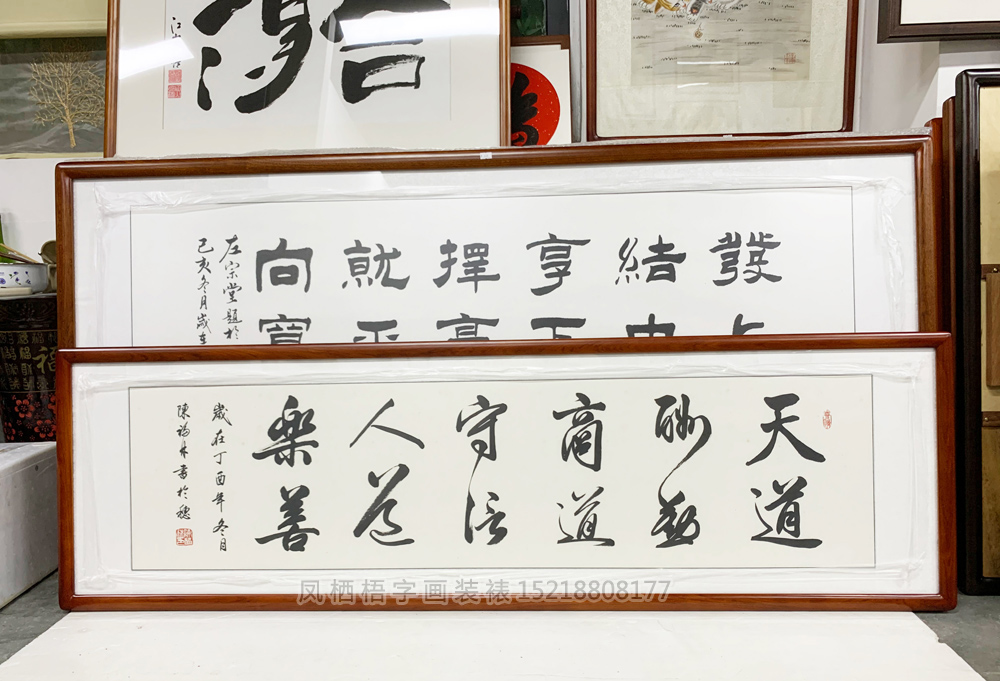 發上
結中
享下
擇高
就平
向寬
左宗堂題於
己亥冬月歲在
天道
酬勤
商道
守信
人道
樂善
歲在丁酉年冬月
陳福林書於穗
凤栖梧字画装裱15218808177